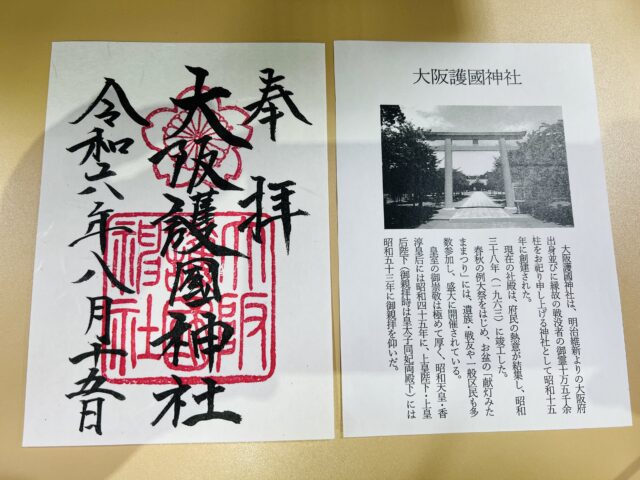 奉拝
大阪護國神社
令和六年八月十五日
大阪護國神社
大阪護國神社
大阪護國神社は、明治維新よりの大阪府
出身並びに縁故の戦没者の御霊十万五千余
柱をお祀り申し上げる神社として昭和十五
年に創建された。
現在の社殿は、府民の熱意が結集し、昭和
三十八年(一九六三)に竣工した。
春秋の例大祭をはじめ、お盆の「献灯みた
ままつり」には、遺族・戦友や一般区民も多
数参加し、盛大に開催されている。
皇室の御崇敬は極めて厚く、昭和天皇・香
淳皇后には昭和四十五年に、上皇陛下・上皇
后陛下(御親拝時は皇太子同妃両殿下)には
昭和五十三年に御親拝を仰いだ。